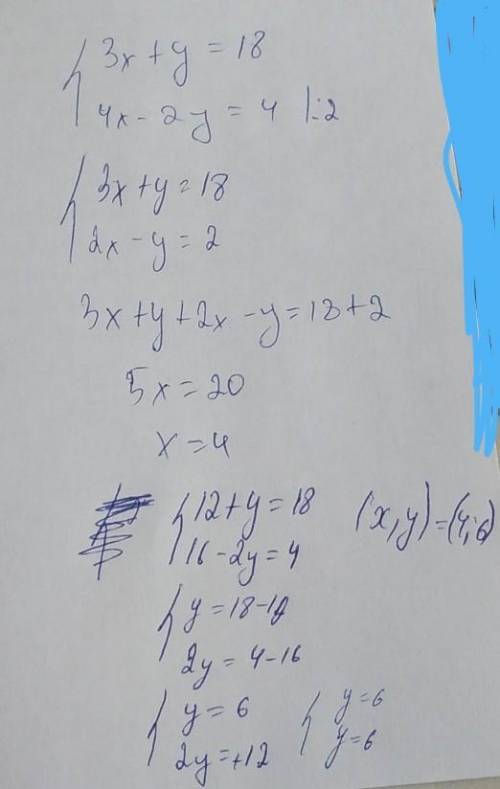 3x + y = 18
4x - 2y = 4 |:2
3x + y = 18
2x - y = 2
3x + y + 2x - y = 18 + 2
5x = 20
x = 4
12 + y = 18
16 - 2y = 4
(x, y) = (4; 6)
y = 18 - 12
2y = 4 - 16
y = 6
2y = +12
y = 6
y = 6